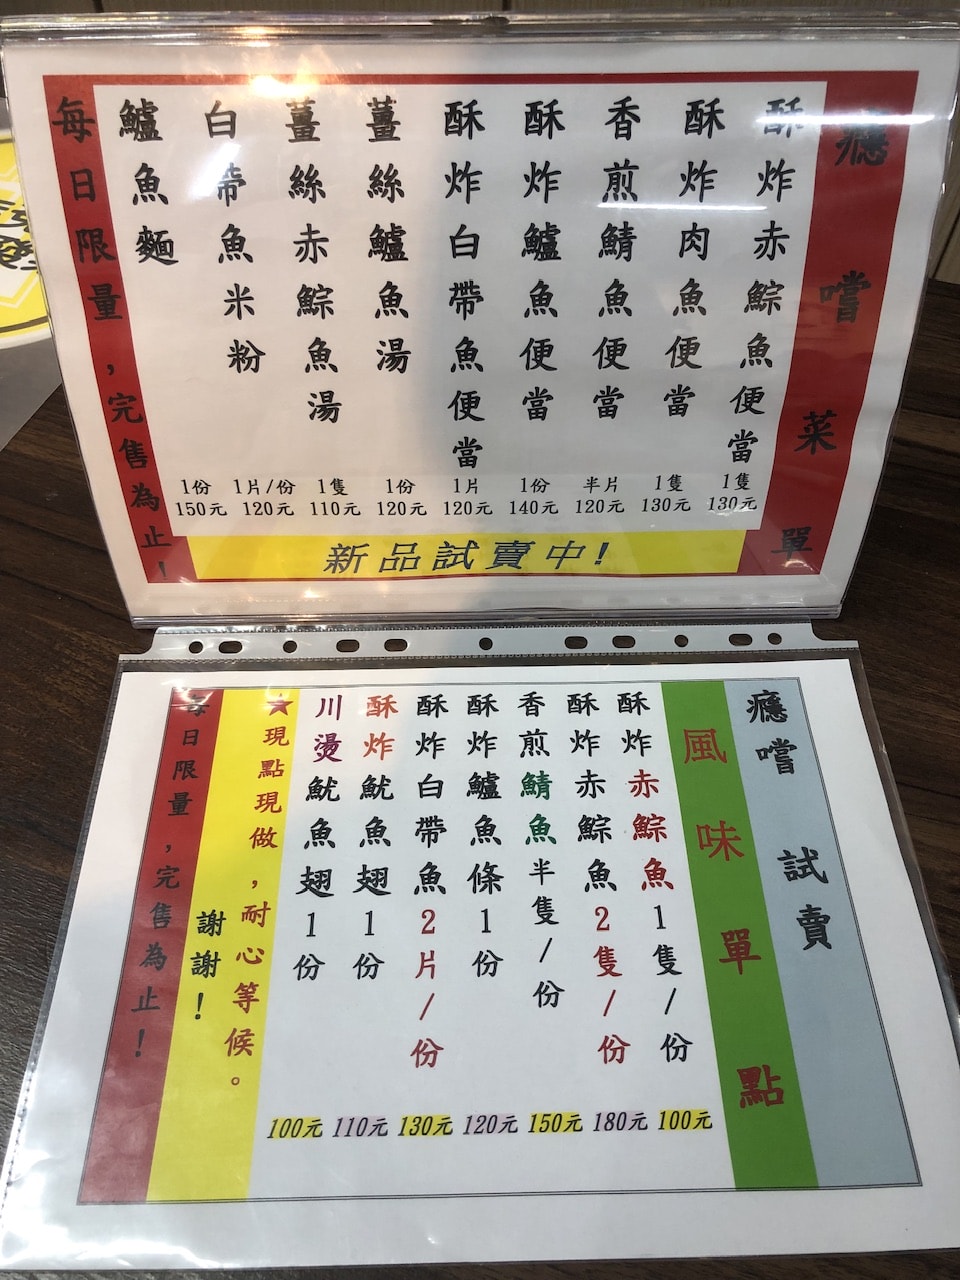 癮嚐菜單
酥炸赤鯮魚便當 1隻 130元
酥炸肉魚便當 1隻 130元
香煎鯖魚便當 半片 120元
酥炸鱸魚便當 1份 140元
酥炸白帶魚便當 1片 120元
薑絲鱸魚湯 1份 120元
薑絲赤鯮魚湯 1隻 110元
白帶魚米粉 1片/份 120元
鱸魚麵 1份 150元
每日限量,完售為止!
新品試賣中!
癮嚐 試賣
風味單點
酥炸赤鯮魚1隻/份 100元
酥炸赤鯮魚2隻/份 180元
香煎鯖魚半隻/份 150元
酥炸鱸魚條1份 120元
酥炸白帶魚2片/份 130元
酥炸魷魚翅1份 110元
川燙魷魚翅1份 100元
★現點現做,耐心等候。
謝謝!
每日限量,完售為止!